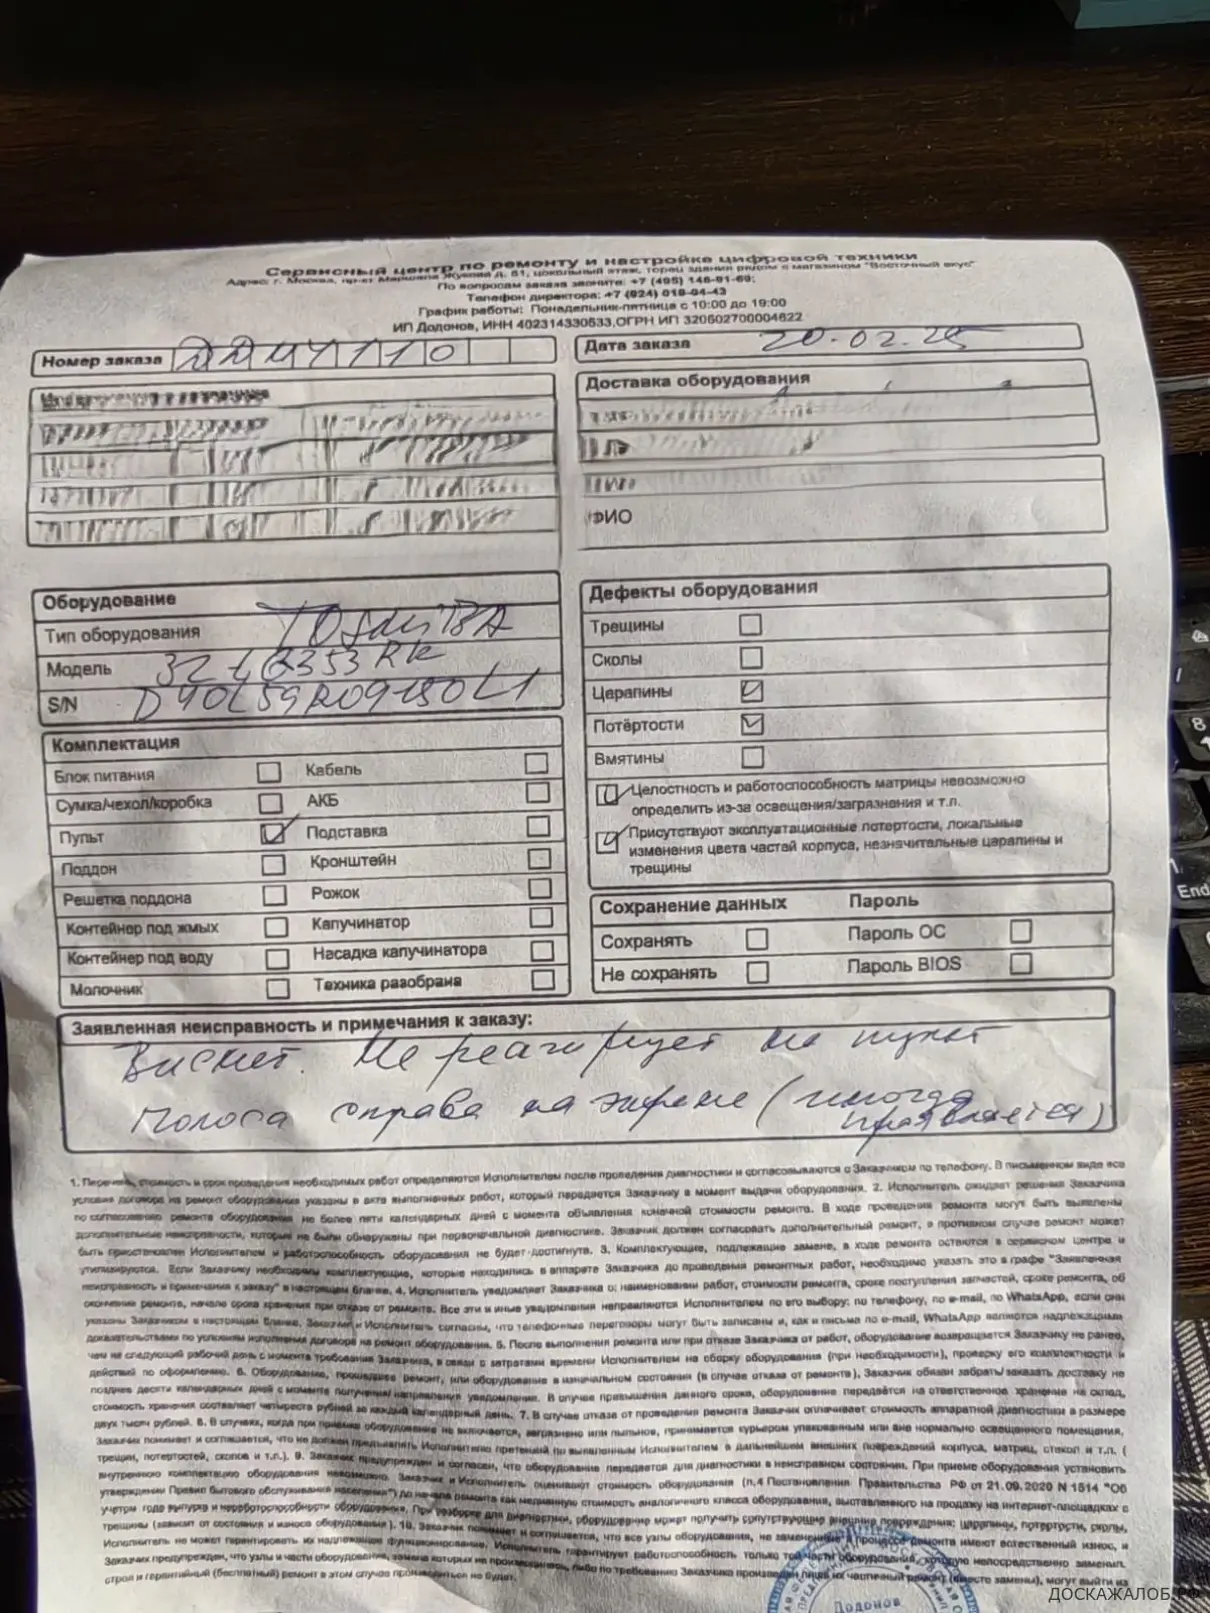 Сервисный центр по ремонту и настройке цифровой техники
Адрес: г. Москва, пр-кт Маршала Жукова д. 51, цокольный этаж, торец здания рядом с магазином "Восточный вкус"
По вопросам заказа звоните: +7 (495) 146-91-69;
Телефон директора: +7 (924) 019-04-43
График работы: Понедельник-пятница с 10:00 до 19:00
ИП Додонов, ИНН 402314330533,ОГРН ИП 320502700004622
Номер заказа
Дата заказа 20.02.25
Доставка оборудования
ФИО
Оборудование
Тип оборудования TOSHIBA
Модель
S/N
Дефекты оборудования
Трещины
Сколы
Царапины
Потёртости
Вмятины
Целостность и работоспособность матрицы невозможно
определить из-за освещения/загрязнения и т.п.
Присутствуют эксплуатационные потертости, локальные
изменения цвета частей корпуса, незначительные царапины и
трещины
Комплектация
Блок питания Кабель
Сумка/чехол/коробка АКБ
Пульт Подставка
Поддон Кронштейн
Решетка поддона Рожок
Контейнер под жмых Капучинатор
Контейнер под воду Насадка капучинатора
Молочник Техника разобрана
Сохранение данных Пароль
Сохранять Пароль ОС
Не сохранять Пароль BIOS
Заявленная неисправность и примечания к заказу:
Виснет. Не реагирует на пульт
Полоса справа на экране (иногда
проявляется)
1. Перечень, стоимость и срок проведения необходимых работ определяются Исполнителем после проведения диагностики и согласовываются с Заказчиком по телефону. В письменном виде все
условия договора на ремонт оборудования указаны в акте выполненных работ, который передается Заказчику в момент выдачи оборудования. 2. Исполнитель ожидает решения Заказчика
по согласованию ремонта оборудования не более пяти календарных дней с момента объявления конечной стоимости ремонта. В ходе проведения ремонта могут быть выявлены
дополнительные неисправности, которые не были обнаружены при первоначальной диагностике. Заказчик должен согласовать дополнительный ремонт, в противном случае ремонт может
быть приостановлен Исполнителем и работоспособность оборудования не будет достигнута. 3. Комплектующие, подлежащие замене, в ходе ремонта остаются в сервисном центре и
утилизируются. Если Заказчику необходимы комплектующие, которые находились в аппарате Заказчика до проведения ремонтных работ, необходимо указать это в графе "Заявленная
неисправность и примечания к заказу" в настоящем бланке. 4. Исполнитель уведомляет Заказчика о: наименовании работ, стоимости ремонта, сроке поступления запчастей, сроке ремонта, об
окончании ремонта, начале срока хранения при отказе от ремонта. Все эти и иные уведомления направляются Исполнителем по его выбору: по телефону, по e-mail, по WhatsApp, если они
указаны Заказчиком в настоящем бланке. Заказчик и Исполнитель согласны, что телефонные переговоры могут быть записаны и, как и письма по e-mail, WhatsApp являются надлежащими
доказательствами по условиям исполнения договора на ремонт оборудования. 5. После выполнения ремонта или при отказе Заказчика от работ, оборудование возвращается Заказчику не ранее,
чем на следующий рабочий день с момента требования Заказчика, в связи с затратами времени Исполнителем на сборку оборудования (при необходимости), проверку его комплектности и
действий по оформлению. 6. Оборудование, прошедшее ремонт, или оборудование в изначальном состоянии (в случае отказа от ремонта), Заказчик обязан забрать/заказать доставку не
позднее десяти календарных дней с момента получения/направления уведомления. В случае превышения данного срока, оборудование передаётся на ответственное хранение на склад,
стоимость хранения составляет четыреста рублей за каждый календарный день. 7. В случае отказа от проведения ремонта Заказчик оплачивает стоимость аппаратной диагностики в размере
двух тысяч рублей. 8. В случаях, когда при приеме оборудование не включается, загрязнено или пыльное, принимается курьером упакованным или вне нормально освещенного помещения,
Заказчик понимает и соглашается, что не должен предъявлять Исполнителю претензий по выявленным Исполнителем в дальнейшем внешних повреждений корпуса, матриц, стекол и т.п. (
трещин, потертостей, сколов и т.п.). 9. Заказчик предупрежден и согласен, что оборудование передается для диагностики в неисправном состоянии. При приеме оборудования установить
внутреннюю комплектацию оборудования невозможно. Заказчик и Исполнитель оценивают стоимость оборудования (п.4 Постановления Правительства РФ от 21.09.2020 N 1514 "Об
утверждении Правил бытового обслуживания населения") до начала ремонта как медианную стоимость аналогичного класса оборудования, выставленного на продажу на интернет-площадках с
учетом года выпуска и неработоспособности оборудования. При разборке для диагностики, оборудование может получить сопутствующие внешние повреждения: царапины, потертости, сколы,
трещины (зависит от состояния и износа оборудования). 10. Заказчик понимает и соглашается, что все узлы оборудования, не замененные в процессе ремонта имеют естественный износ, и
Исполнитель не может гарантировать их надлежащее функционирование. Исполнитель гарантирует работоспособность только той части оборудования, которую непосредственно заменил.
Заказчик предупрежден, что узлы и части оборудования, замена которых не производилась, либо по требованию Заказчика произведен лишь их частичный ремонт (вместо замены), могут выйти из
строя и гарантийный (бесплатный) ремонт в этом случае производиться не будет.
Додонов
ДОСКАЖАЛОБ.РФ
8
End